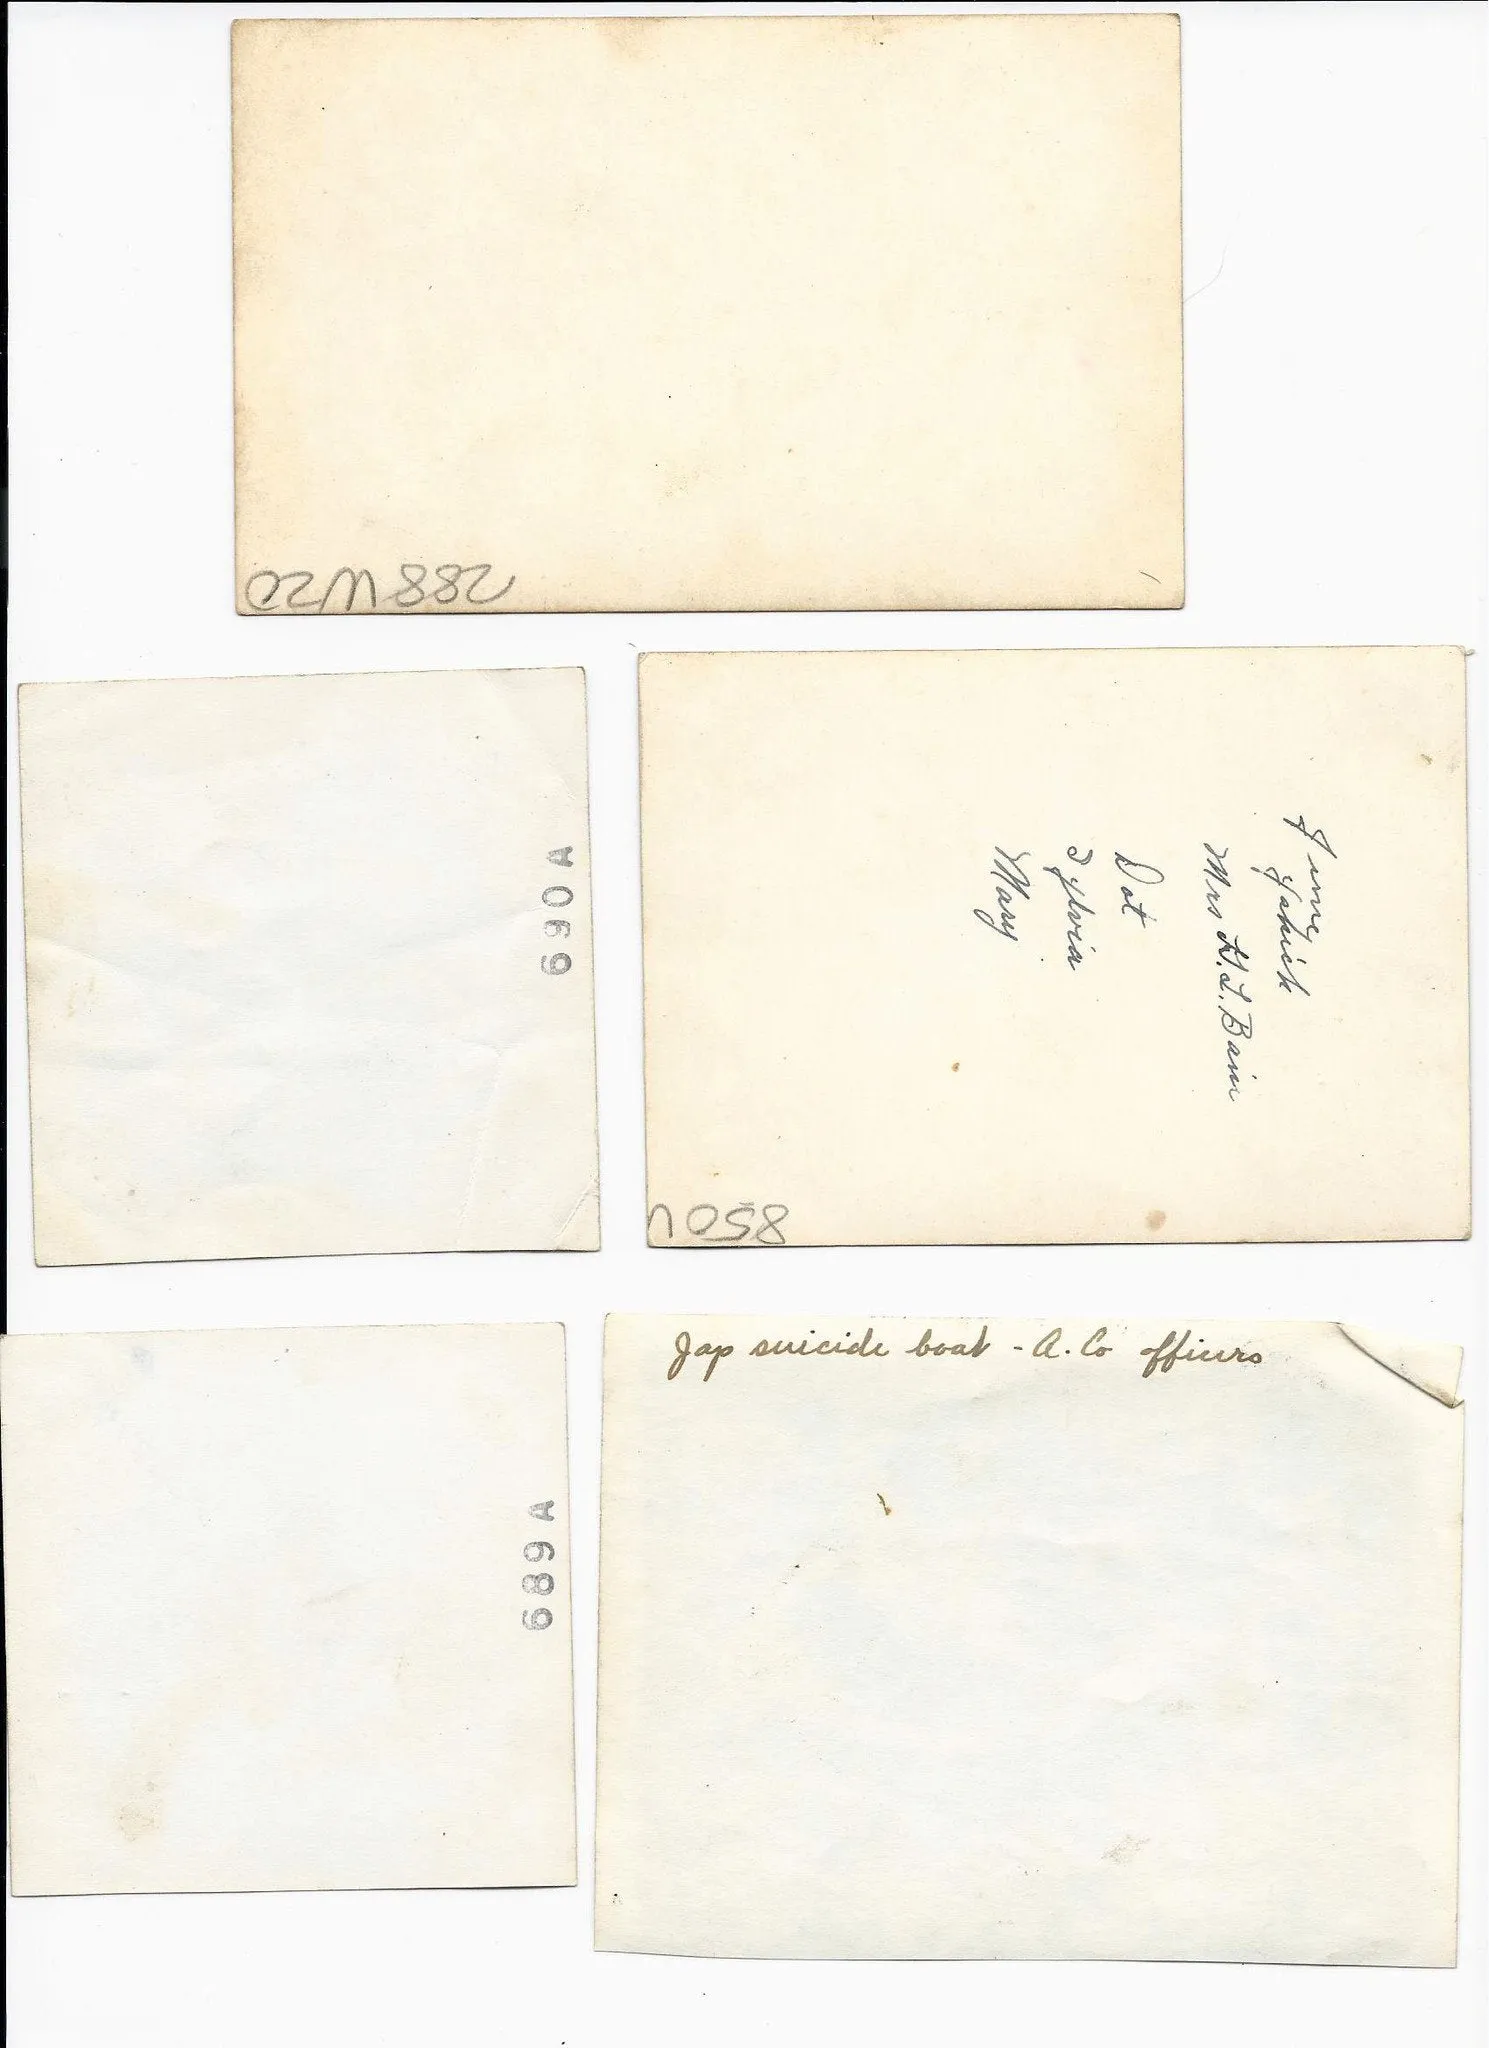 288W20
690A
Mrs H.L. Bain
Dot
Sylvia
Mary
850U
Jap suicide boat - A. Co officers
689A